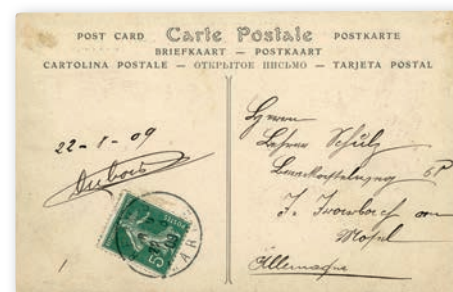 POST CARD Carte Postale POSTKARTE
BRIEFKAART — POSTKAART
CARTOLINA POSTALE — ОТКРЫТОЕ ПИСЬМО — TARJETA POSTAL
22-1-09
Dubois
5
POSTES
Herrn
Lehrer Schulz
J. Trowbach am
Mosel
Allemagne